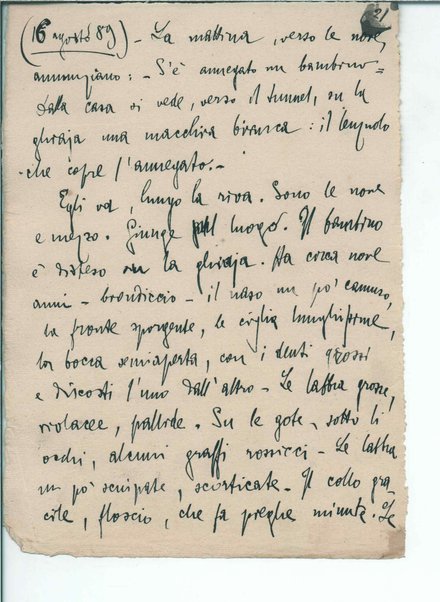 21
(6 agosto 89) - La mattina, verso le nove,
annunziano: - S'è annegato un bambino -
Dalla casa si vede, verso il tunnel, su la
ghiaja una macchia bianca: il lenzuolo
che copre l'annegato. -
Egli va, lungo la riva. Sono le nove
e mezzo. Giunge sul luogo. Il bambino
è disteso su la ghiaja. Ha circa nove
anni - brondiccio - il naso un po' camuso,
la fronte sporgente, le ciglia lunghissime,
la bocca semiaperta, con i denti grossi
e discosti l'uno dall'altro - Le labbra grosse,
violacee, pallide. Su le gote, sotto li
occhi, alcuni graffi rossicci - Le labbra
un po' sciupate, scorticate - Il collo gra-
cile, floscio, che fa pieghe minute. Le